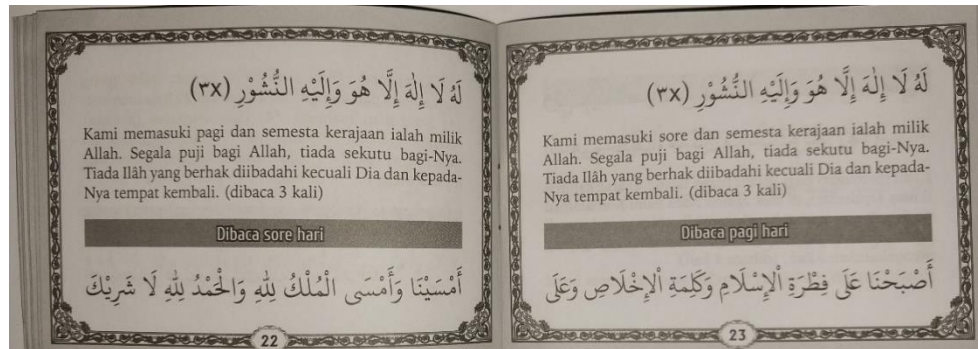 لَهُ لَا إِلٰهَ إِلَّا هُوَ وَإِلَيْهِ النُّشُوْرِ (٣x)
Kami memasuki pagi dan semesta kerajaan ialah milik
Allah. Segala puji bagi Allah, tiada sekutu bagi-Nya.
Tiada Ilâh yang berhak diibadahi kecuali Dia dan kepada-
Nya tempat kembali. (dibaca 3 kali)
Dibaca sore hari
أَمْسَيْنَا وَأَمْسَى الْمُلْكُ لِلّٰهِ وَالْحَمْدُ لِلّٰهِ لَا شَرِيْكَ
22
لَهُ لَا إِلٰهَ إِلَّا هُوَ وَإِلَيْهِ النُّشُوْرِ (٣x)
Kami memasuki sore dan semesta kerajaan ialah milik
Allah. Segala puji bagi Allah, tiada sekutu bagi-Nya.
Tiada Ilâh yang berhak diibadahi kecuali Dia dan kepada-
Nya tempat kembali. (dibaca 3 kali)
Dibaca pagi hari
أَصْبَحْنَا عَلَى فِطْرَةِ الْإِسْلَامِ وَكَلِمَةِ الْإِخْلَاصِ وَعَلَى
23